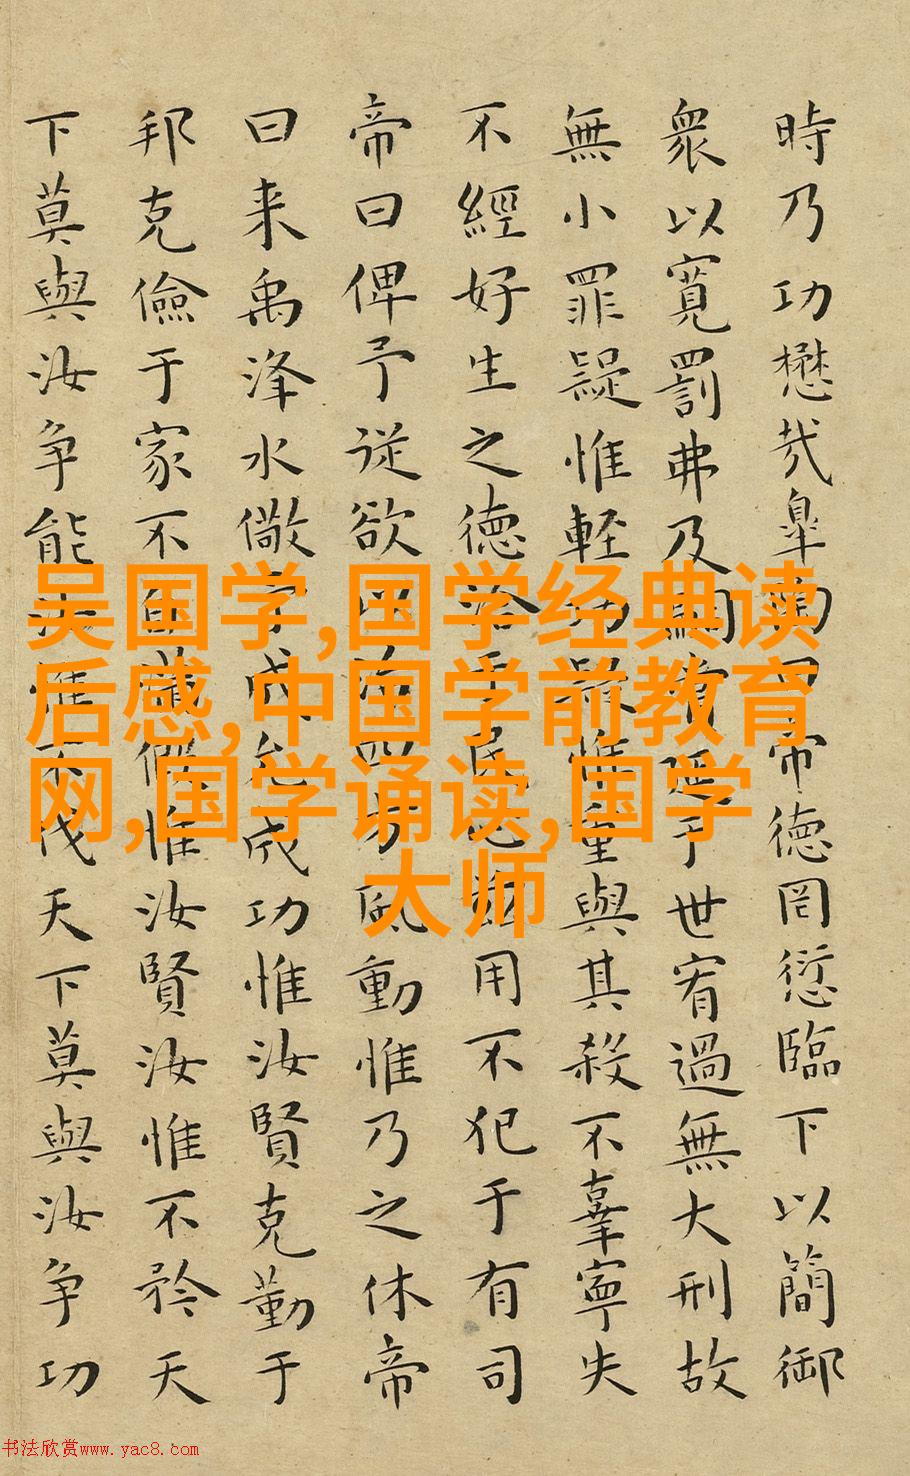 時乃功懋哉皐陶曰帝徳罔愆臨下以簡御
衆以寛罰弗及嗣賞延于世宥過無大刑故
無小罪疑惟軽功疑惟重與其殺不辜寧失
不經好生之徳洽于民心茲用不犯于有司
帝曰俾予從欲以治四方風動惟乃之休帝
曰来禹洚水儆予成允成功惟汝賢克勤于
邦克儉于家不自滿假惟汝賢汝惟不矜天
下莫與汝争能汝惟不伐天下莫與汝争功
吴国学,国学经典读
后感,中国学前教育
网,国学诵读,国学
大师
书法欣赏www.yac8.com